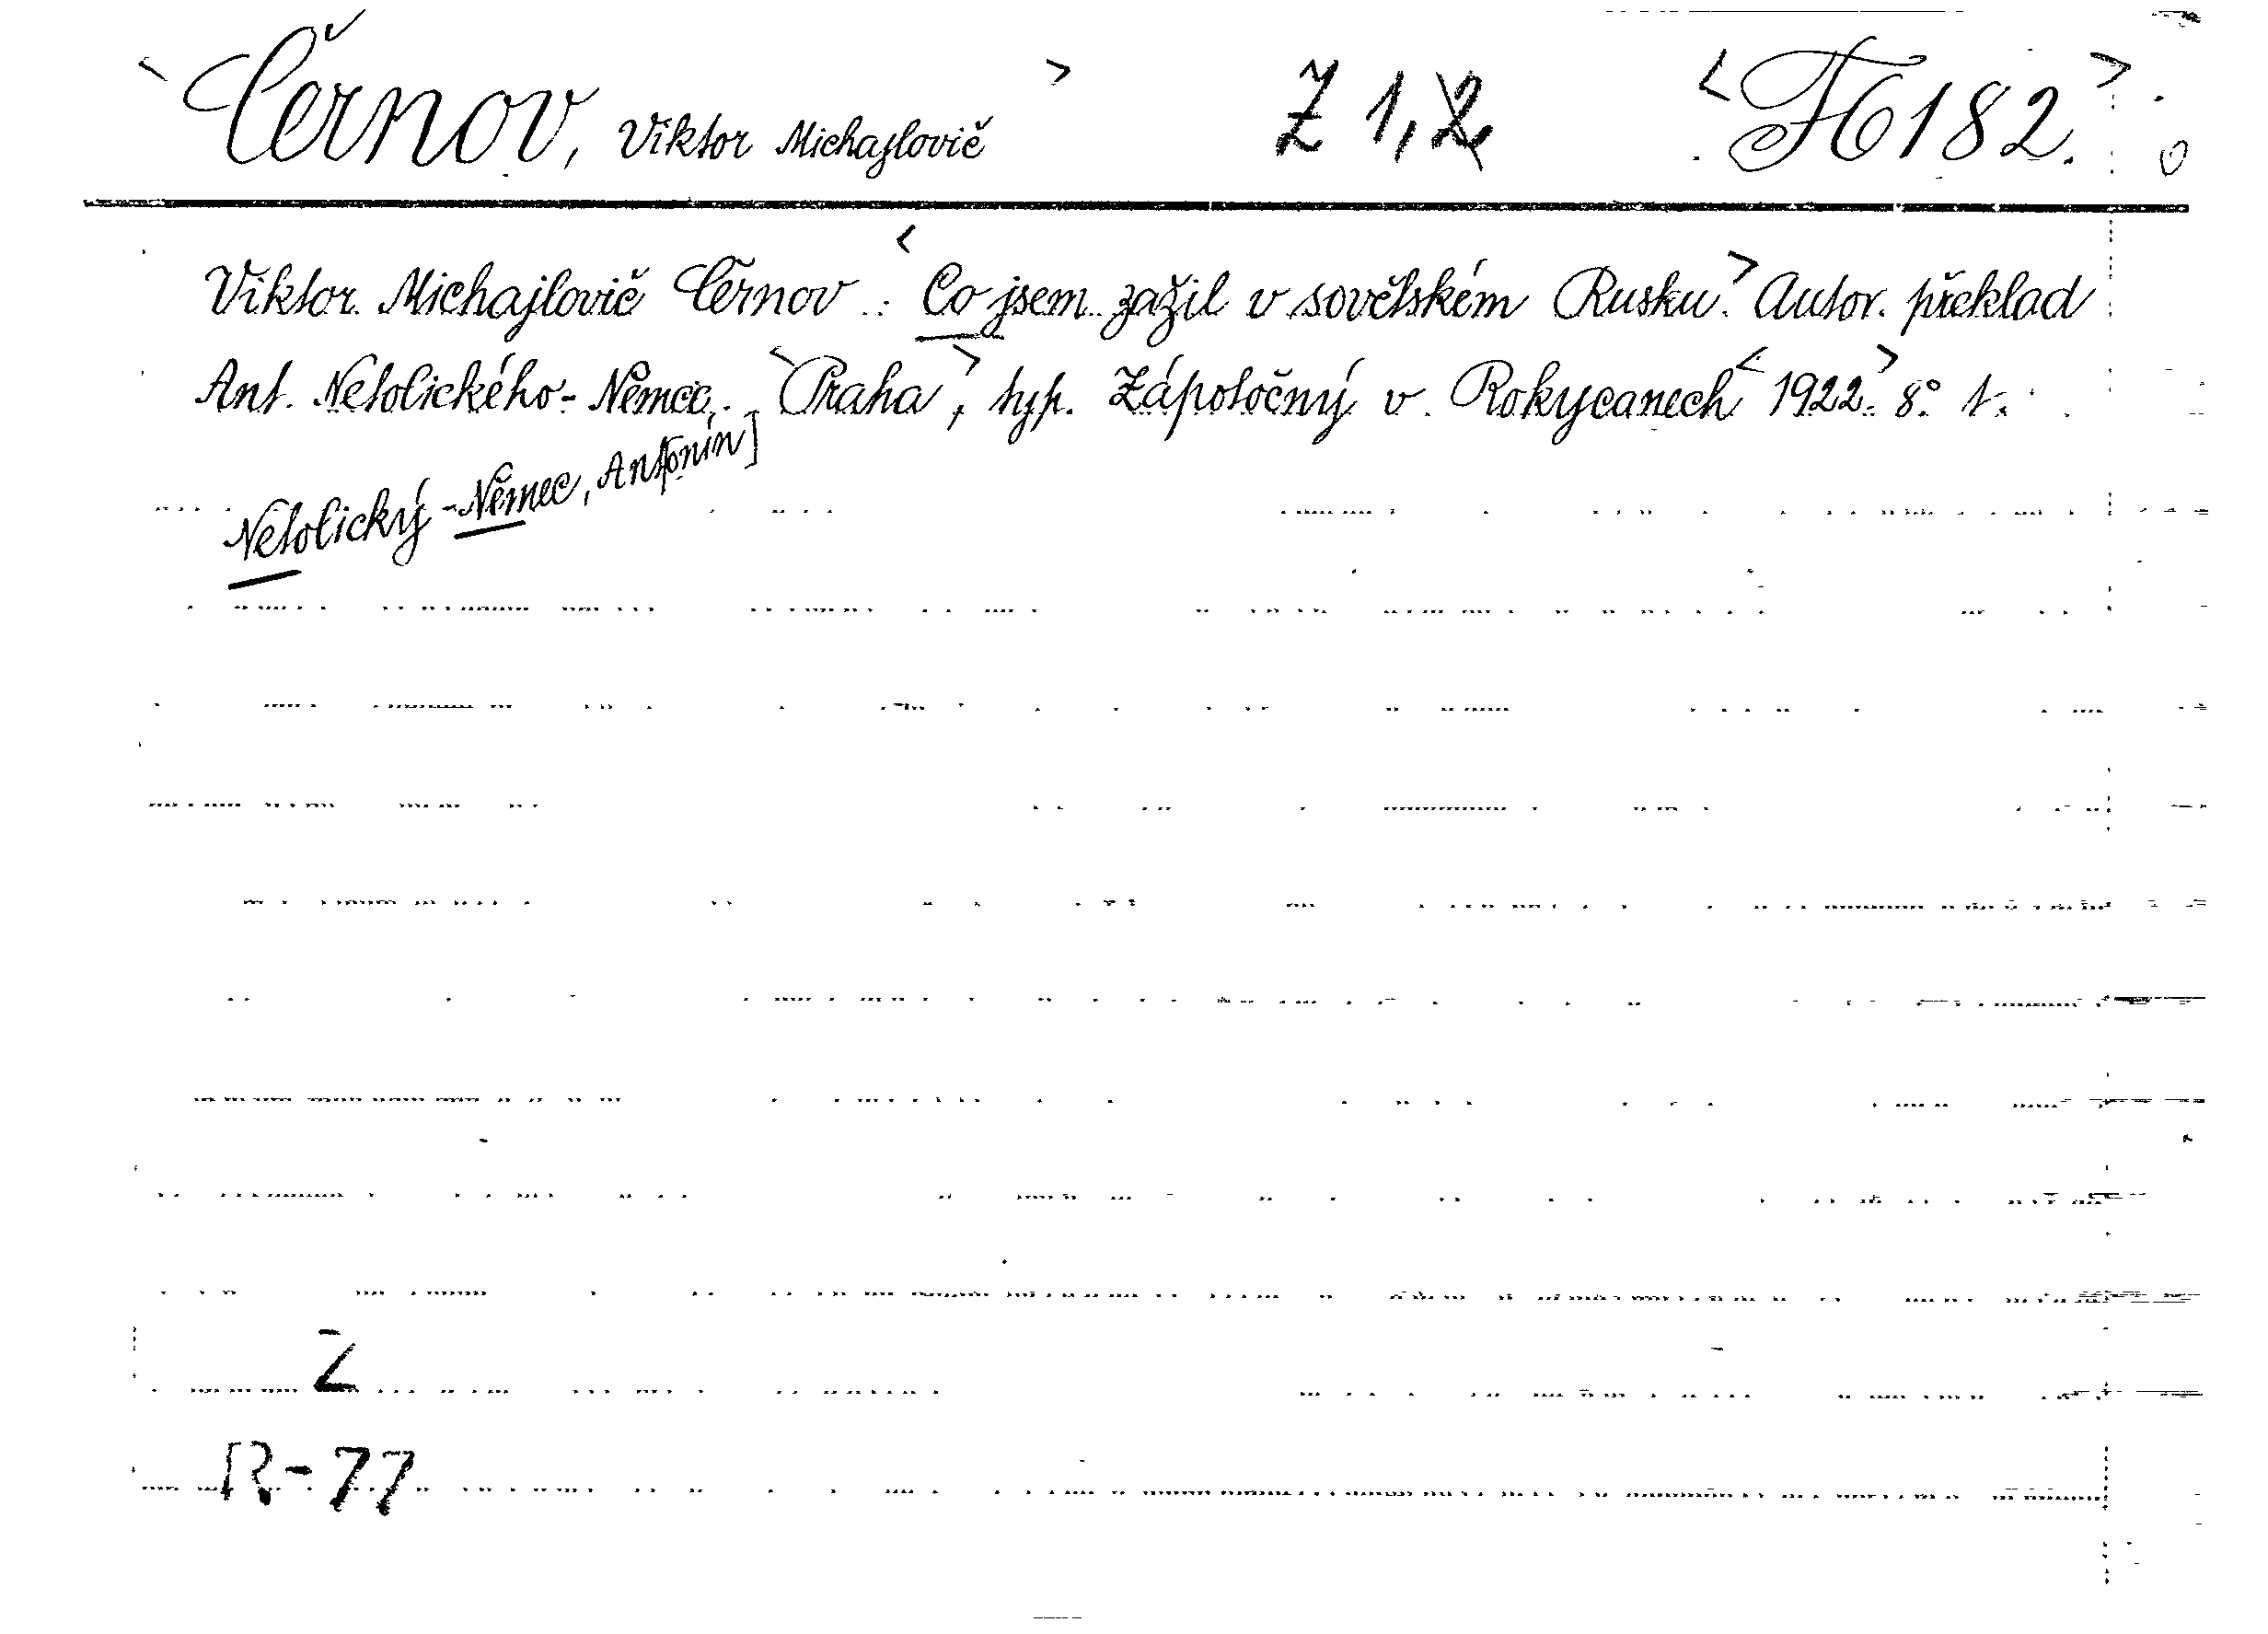 Černov, Viktor Michajlovič Z 1,2 H 182.
Viktor Michajlovič Černov: Co jsem zažil v sovětském Rusku. Autor. překlad
Ant. Netolického-Němec, Praha, typ. Zápotočný v Rokycanech 1922. 8° 1.
Netolický-Němec, Antonín]
Z
R-77